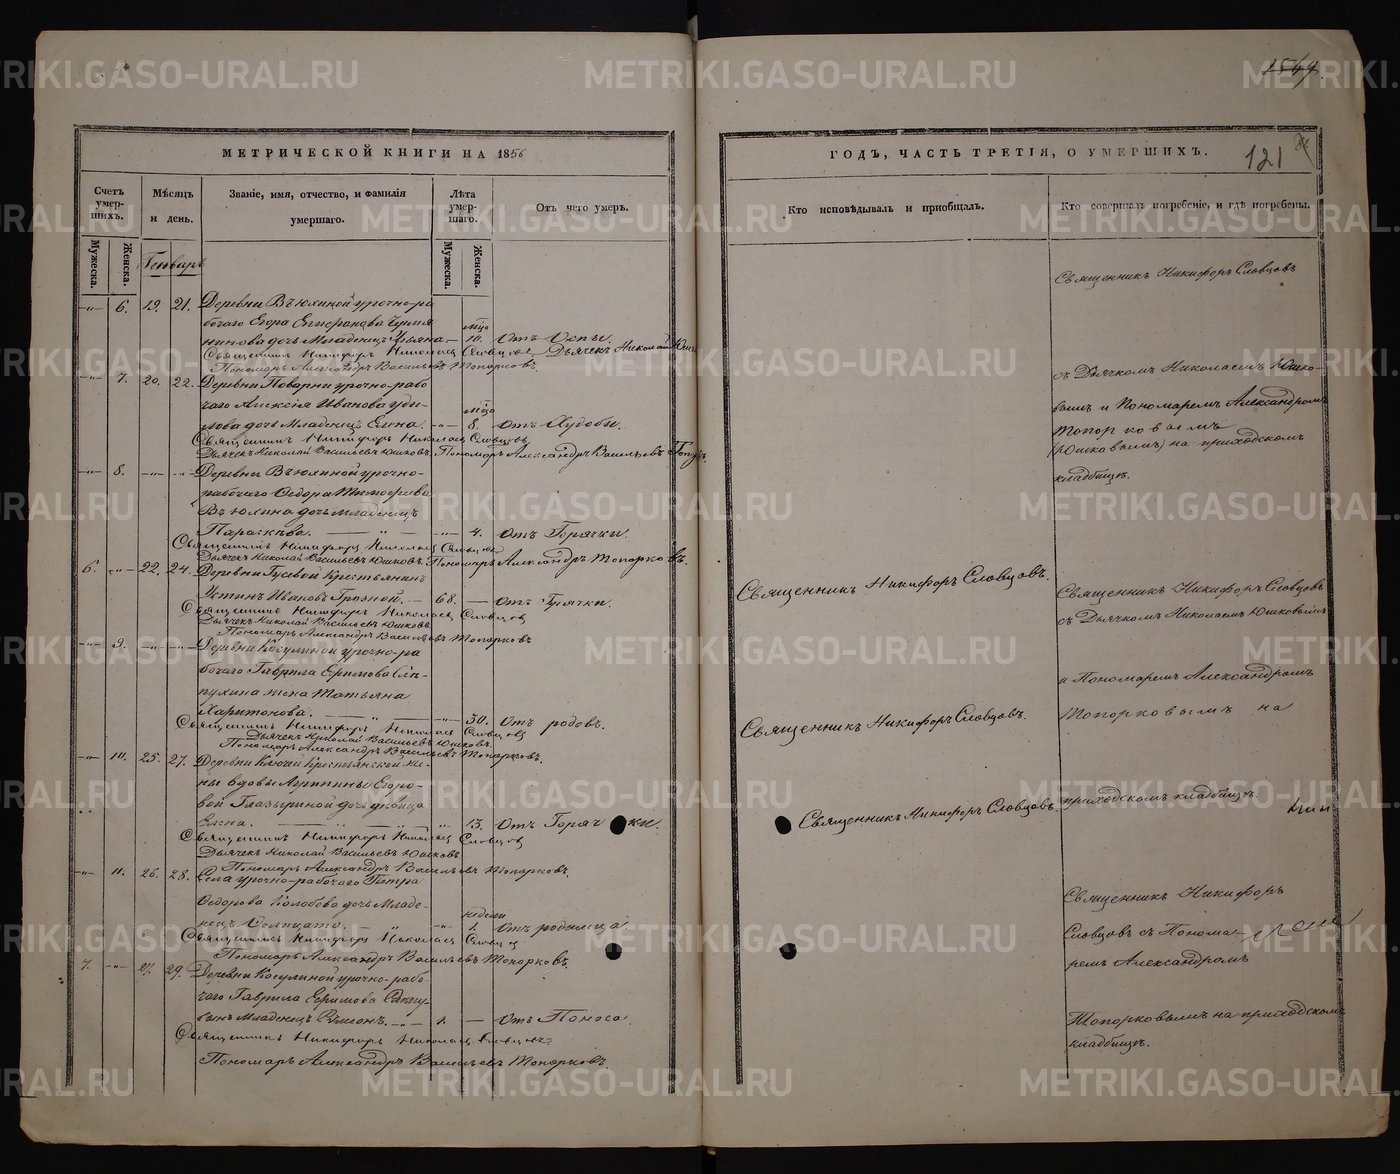 МЕТРИЧЕСКОЙ КНИГИ НА 1856
Счетъ умершихъ.
Мѣсяцъ и день.
Званіе, имя, отчество, и фамилія умершаго.
Лѣта умершаго.
Отъ чего умеръ.
Мужеска.
Женска.
Мужеска.
Женска.
Генварь
-"- 6. 19. 21. Деревни Вьюхиной урочно-ра
бочаго Егора
нинова дочь Младенецъ Ульяна — 10. Отъ Оспы.
Священникъ Никифоръ Николаевъ Словцовъ Дьячекъ Николай
Пономарь Александръ Васильевъ Топорковъ.
-"- 7. 20. 22. Деревни Поварни урочно-рабо
чаго Алексія Иванова Уди
лова дочь Младенецъ Елена. -"- 8. Отъ Худобы.
Священникъ Никифоръ Николаевъ Словцовъ
Дьячекъ Николай Васильевъ Юшковъ. Пономарь Александръ Васильевъ
-"- 8. -"- -"- Деревни Вьюхиной урочно-
рабочаго Ѳедора Тимофеева
Вьюхина дочь Младенецъ
Параскѣва. — " — -"- 4. Отъ Горячки.
Священникъ Никифоръ Николаевъ Словцовъ
Дьячекъ Николай Васильевъ Юшковъ. Пономарь Александръ Топорковъ.
6. -"- 22. 24. Деревни Гусевой Крестьянинъ
Устинъ Ивановъ Грязной. — 68. — Отъ Горячки.
Священникъ Никифоръ Николаевъ Словцовъ
Дьячекъ Николай Васильевъ Юшковъ.
Пономарь Александръ Васильевъ Топорковъ
-"- 9. -"- -"- Деревни Косулиной урочно-ра
бочаго Гаврила Ефимова
жена Татьяна
Харитонова. — " — -"- 30. Отъ родовъ.
Священникъ Никифоръ Николаевъ Словцовъ
Дьячекъ Николай Васильевъ Юшковъ.
Пономарь Александръ Васильевъ Топорковъ.
-"- 10. 25. 27. Деревни Ключей Крестьянской же-
ны вдовы Агрипины Егоро-
вой Глазыриной дочь девица
Елена. — " — " 13. Отъ Горячки.
Священникъ Никифоръ Николаевъ Словцовъ
Дьячекъ Николай Васильевъ Юшковъ.
Пономарь Александръ Васильевъ Топорковъ.
-"- 11. 26. 28. Села урочно-рабочаго Петра
Ѳедорова Колобова дочь Младе-
нецъ — " — недели 1. Отъ родимца
Священникъ Никифоръ Николаевъ Словцовъ
Пономарь Александръ Васильевъ Топорковъ.
7. -"- 27. 29. Деревни Косулиной урочно-рабо
чаго Гаврила Ефимова
сынъ Младенецъ Сѵмеонъ. -"- 1. — Отъ Поноса
Священникъ Никифоръ Николаевъ Словцовъ
Пономарь Александръ Васильевъ Топорковъ.
1549.
ГОДЪ, ЧАСТЬ ТРЕТІЯ, О УМЕРШИХЪ.
121
Кто исповѣдывалъ и пріобщалъ.
Кто совершалъ погребеніе, и гдѣ погребены.
Священникъ Никифоръ Словцовъ
съ Дьячкомъ Николаемъ Юшко-
вымъ и Пономаремъ Александромъ
Топорковымъ
(Юшковымъ) на приходскомъ
кладбищѣ.
Священникъ Никифоръ Словцовъ.
Священникъ Никифоръ Словцовъ
съ Дьячкомъ Николаемъ Юшковымъ
и Пономаремъ Александромъ
Священникъ Никифоръ Словцовъ.
Топорковымъ на
приходскомъ кладбищѣ.
Священникъ Никифоръ Словцовъ.
Священникъ Никифоръ
Словцовъ съ Понома-
ремъ Александромъ
Топорковымъ на приходскомъ
кладбищѣ.
METRIKI.GASO-URAL.RU